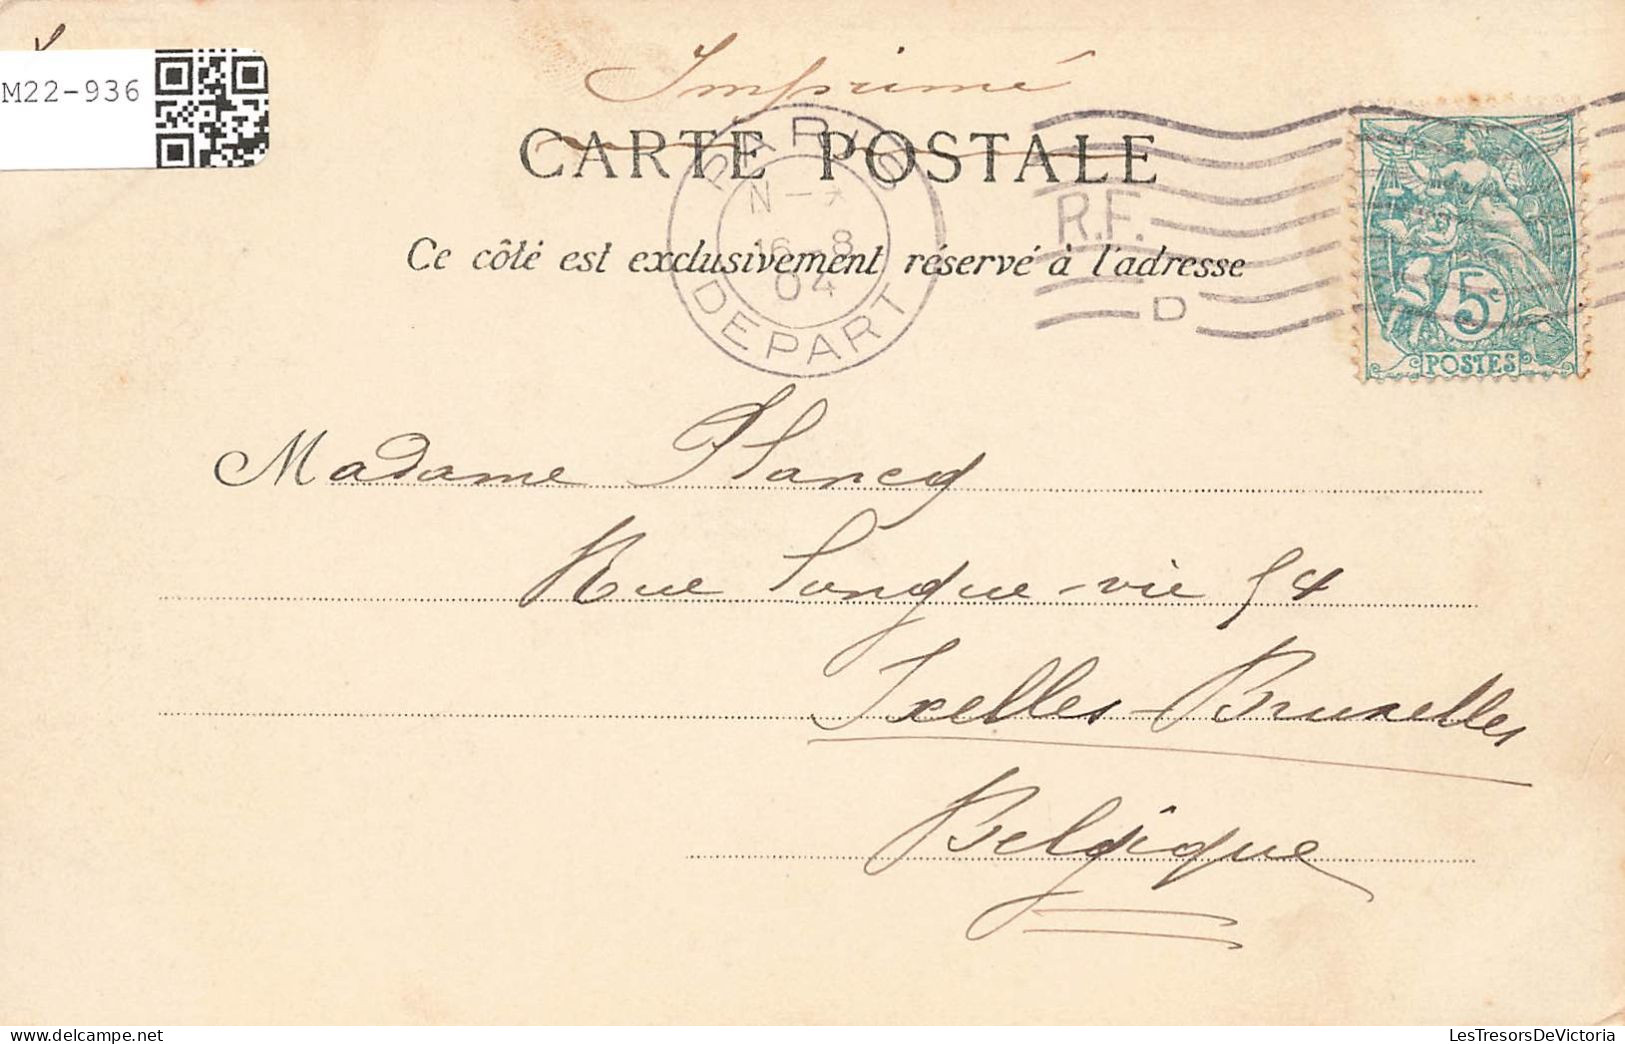 M22-936
Imprimé
CARTE POSTALE
PARIS
16-8
04
DEPART
R.F.
D
Ce côté est exclusivement réservé à l'adresse
5c
POSTES
Madame Plancq
Rue Longue-vie 54
Ixelles-Bruxelles
Belgique
LesTresorsDeVictoria
www.delcampe.net